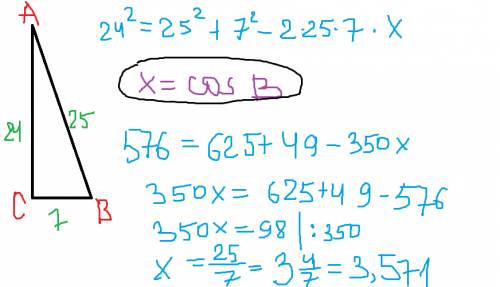 A
24² = 25² + 7² - 2·25·7·X
X = cos B
24
25
576 = 625 + 49 - 350x
350x = 625 + 49 - 576
C
B
7
350x = 98 | : 350
X = 25/7 = 3 4/7 = 3,571